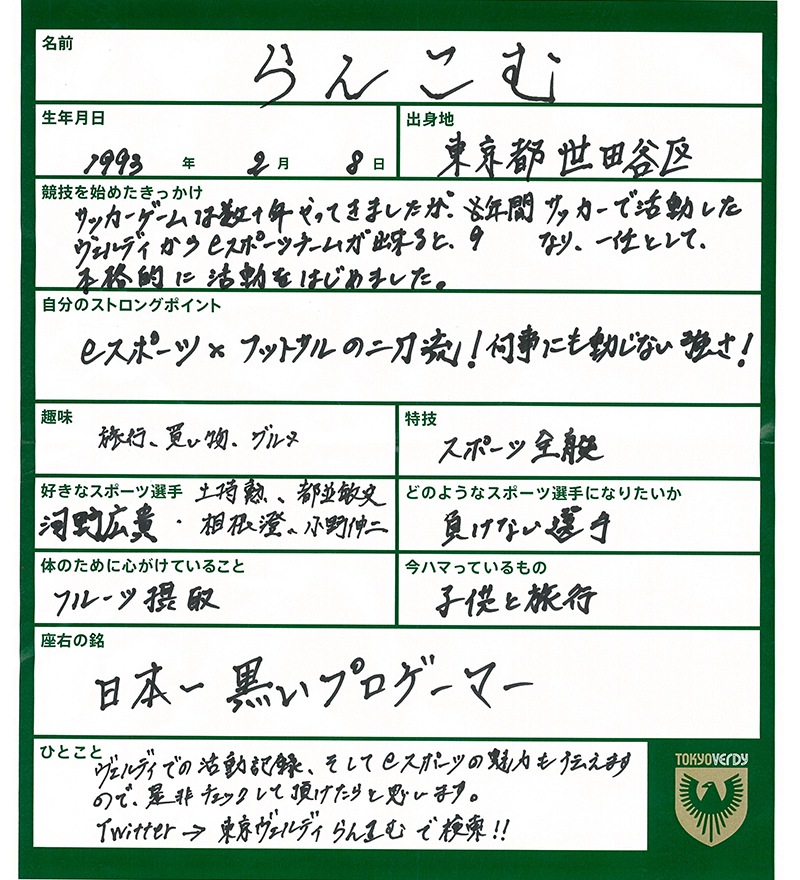 名前
らんこむ
生年月日
1993 年 2 月 8 日
出身地
東京都 世田谷区
競技を始めたきっかけ
サッカーゲームは数十年やってきましたが、8年間 サッカーで活動した
ヴェルディからeスポーツチームが出来ると、 なり、一任として、
本格的に活動をはじめました。
自分のストロングポイント
eスポーツ×フットサルの二刀流!何事にも動じない強さ!
趣味
旅行、買い物、グルメ
特技
スポーツ全般
好きなスポーツ選手 土持勲、都並敏史
河野広貴・相根澄、小野伸二
どのようなスポーツ選手になりたいか
負けない選手
体のために心がけていること
フルーツ摂取
今ハマっているもの
子供と旅行
座右の銘
日本一黒いプロゲーマー
ひとこと
ヴェルディでの活動記録、そしてeスポーツの魅力も伝えます
ので、是非チェックして頂けたらと思います。
Twitter→ 東京ヴェルディ らんこむ で検索!!
TOKYO VERDY